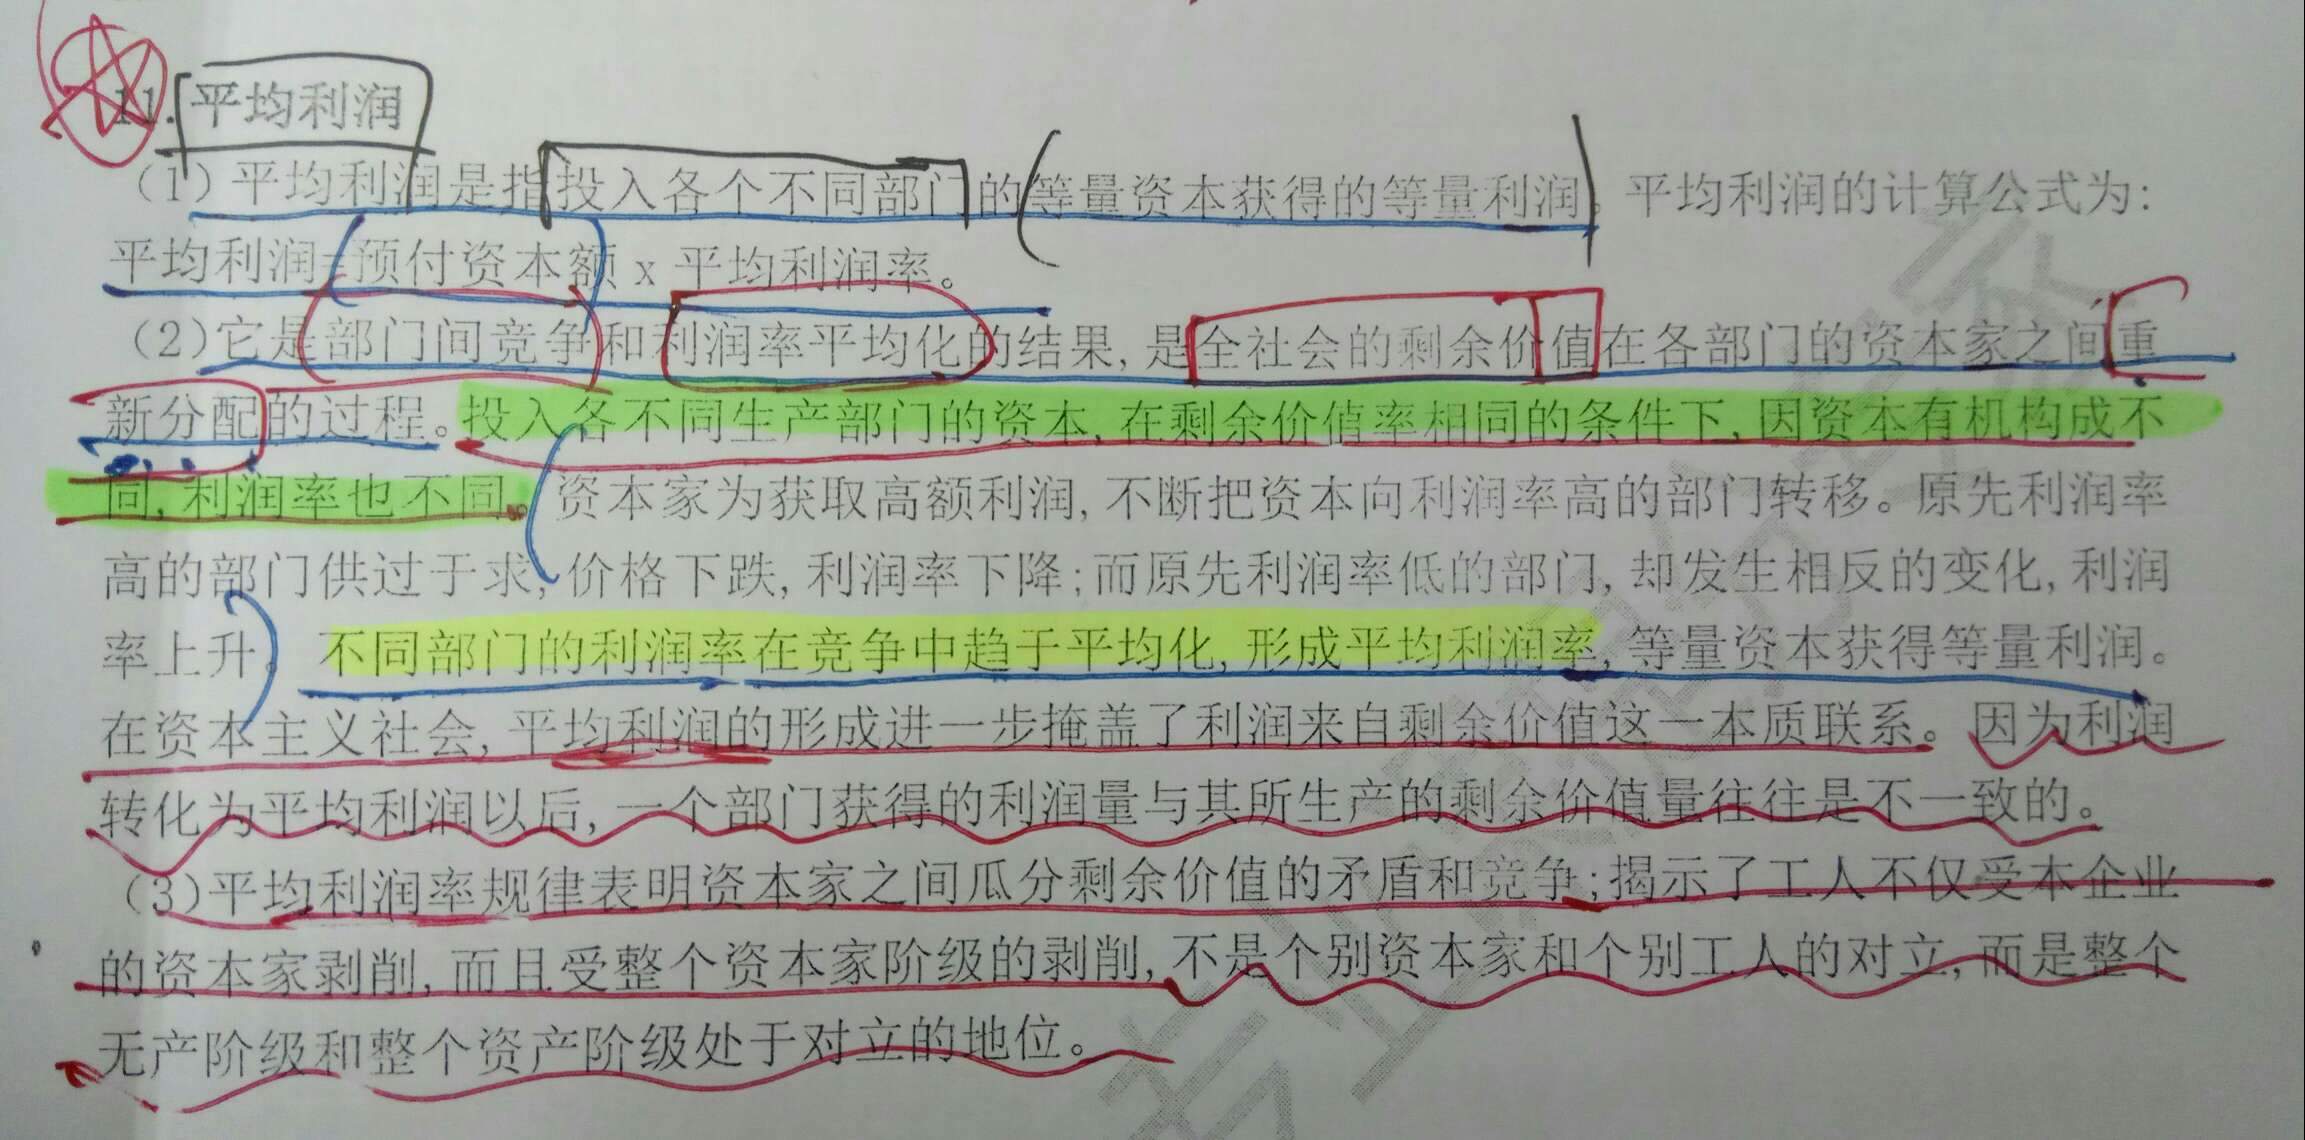 11. 平均利润
(1) 平均利润是指投入各个不同部门的等量资本获得的等量利润。平均利润的计算公式为:
平均利润=预付资本额 x 平均利润率。
(2)它是部门间竞争和利润率平均化的结果, 是全社会的剩余价值在各部门的资本家之间重
新分配的过程。投入各不同生产部门的资本, 在剩余价值率相同的条件下, 因资本有机构成不
同, 利润率也不同。资本家为获取高额利润, 不断把资本向利润率高的部门转移。原先利润率
高的部门供过于求, 价格下跌, 利润率下降; 而原先利润率低的部门, 却发生相反的变化, 利润
率上升。不同部门的利润率在竞争中趋于平均化, 形成平均利润率, 等量资本获得等量利润。
在资本主义社会, 平均利润的形成进一步掩盖了利润来自剩余价值这一本质联系。因为利润
转化为平均利润以后, 一个部门获得的利润量与其所生产的剩余价值量往往是不一致的。
(3)平均利润率规律表明资本家之间瓜分剩余价值的矛盾和竞争; 揭示了工人不仅受本企业
的资本家剥削, 而且受整个资本家阶级的剥削, 不是个别资本家和个别工人的对立, 而是整个
无产阶级和整个资产阶级处于对立的地位。